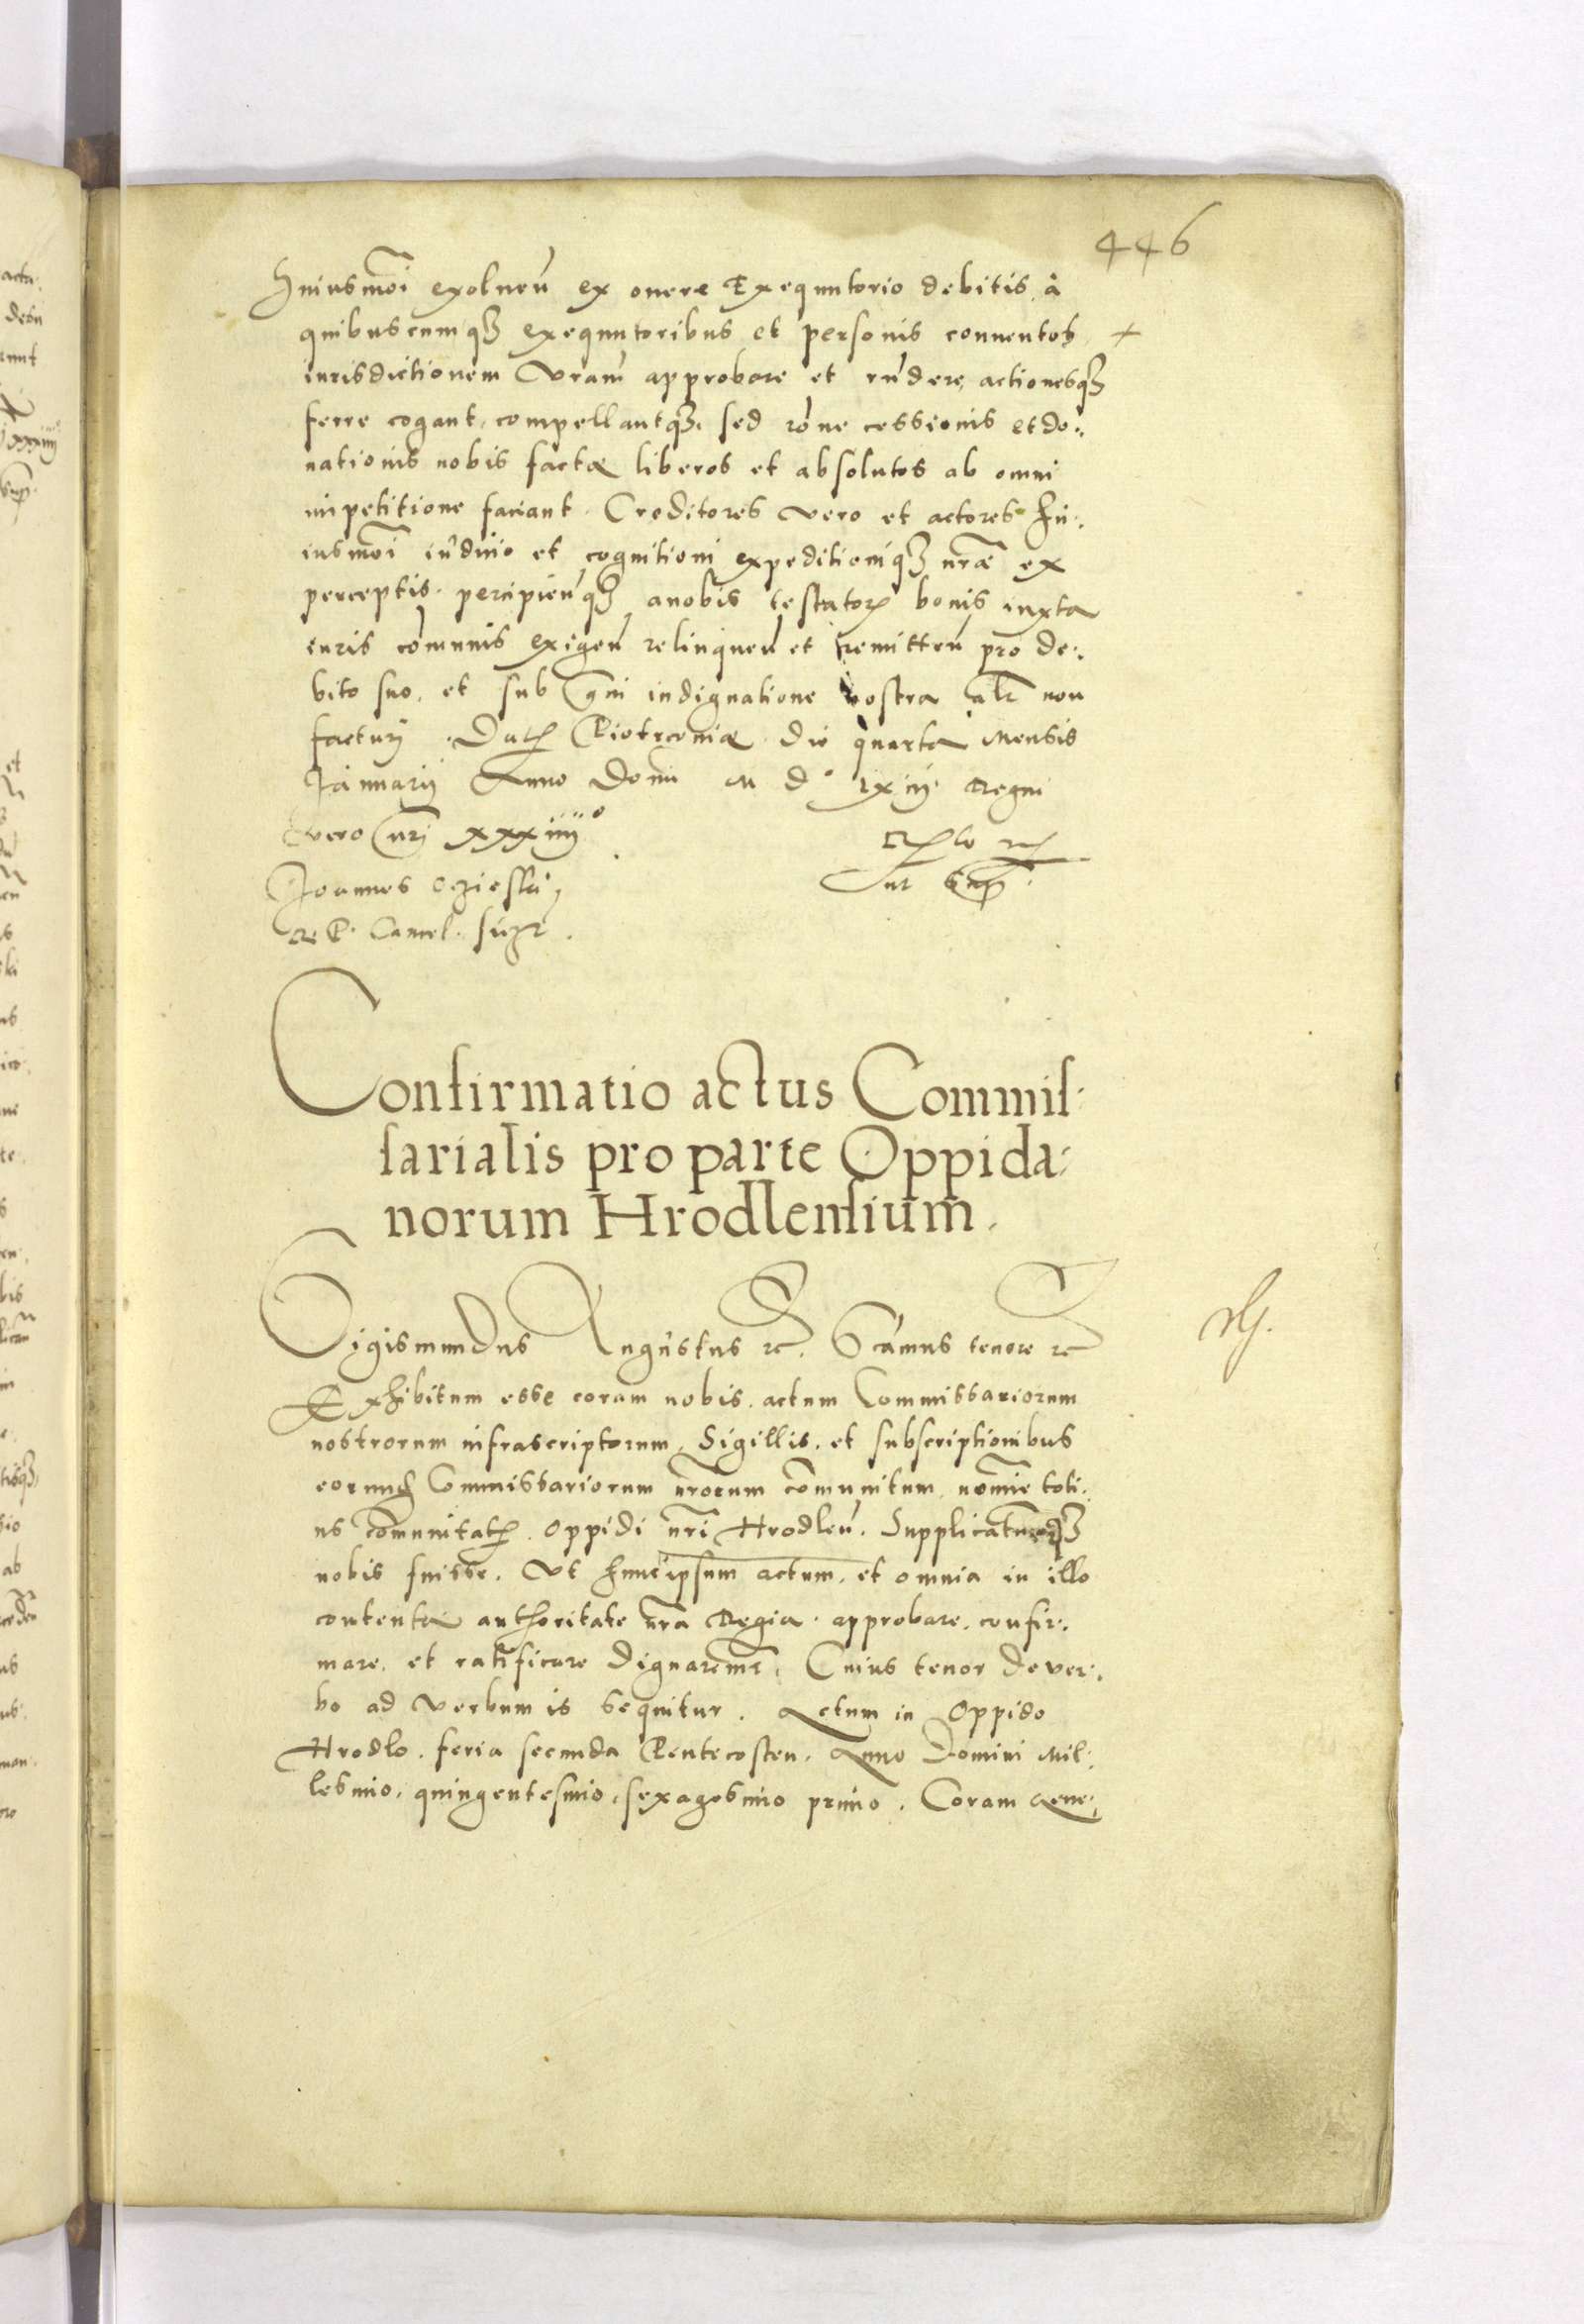 446
Huiusmõi exoluen̄ ex onere Exequutorio debitis, à
quibuscumqʒ exequutoribus et personis conuentos
iurisdictionem Vram̄ approbare et rn̄dere, actionesqʒ
ferre cogant, compellantqʒ. sed rōne cessionis et do:
nationis nobis factæ liberos et absolutos ab omni
impetitione faciant. Creditores vero et actores hu:
iusmõi iudicio et cognitioni expeditioniqʒ nr̄æ ex
perceptis. percipien̄qʒ anobis testatoꝝ bonis iuxta
iuris com̄unis exigen̄ relinquen̄ et remitten̄ pro de:
bito suo. et sub grãi indignatione nostra al̄r non
facturi. Datꝭ Piotrconiæ die quarta Mensis
Januarij Anno Domi M D° lxiij. Regni
vero nr̄i xxxiiii°
Joannes Oczieski,
R. P. Cancel. sūgr.
Confirmatio actus Commis:
sarialis pro parte Oppida:
norum Hrodlensium.
Sigismundus Augustus rc. Sc̄amus tenore rc
Exhibitum esse coram nobis. actum Commissariorum
nostrorum infrascriptorum, Sigillis. et subscriptionibus
eorumd Commissariorum nr̄orum com̄unitum, nomīe toti:
us com̄unitatꝭ. oppidi nr̄i Hrodlen̄. Supplicatumqʒ
nobis fuisse. Vt hunc ipsum actum, et omnia in illo
contenta authoritate nr̄a Regia. approbare. confir:
mare. et ratificare dignaremr̄. Cuius tenor de ver:
bo ad verbum is sequitur. Actum in Oppido
Hrodlo. feria secunda Pentecosten. Anno Domini Mil:
lesimo. quingentesimo, sexagesimo primo. Coram Gene: